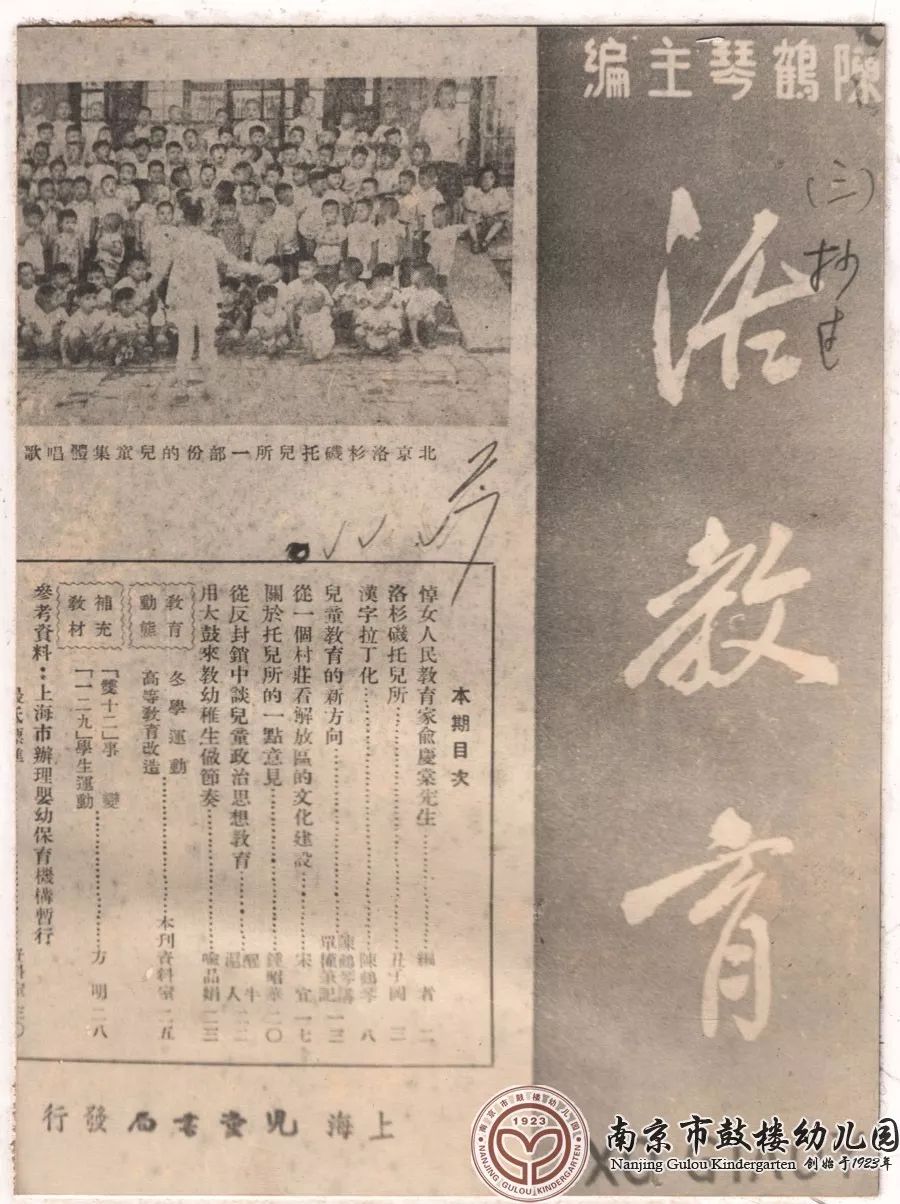 陳鶴琴主編
活教育
(三)
北京洛杉磯托兒所一部份的兒童集體唱歌
本期目次
悼女人民教育家俞慶棠先生………編者 二
洛杉磯托兒所………三
漢字拉丁化………陳鶴琴 八
兒童教育的新方向………陳鶴琴講 筆記 一三
從一個村莊看解放區的文化建設………宋宜 一七
關於托兒所的一點意見………鍾昭華 二〇
從反封鎖中談兒童政治思想教育………
用大鼓來教幼稚生做節奏………喩品娟 二三
教育動態
冬學運動
高等教育改造………本刊資料室 二五
補充教材
「雙十二」事變
「一二九」學生運動………方明 二八
參考資料：上海市辦理嬰幼保育機構暫行
上海兒童書局發行
南京市鼓楼幼儿园
NANJING GULOU KINDERGARTEN
1923
南京市鼓楼幼儿园
Nanjing Gulou Kindergarten 创始于1923年